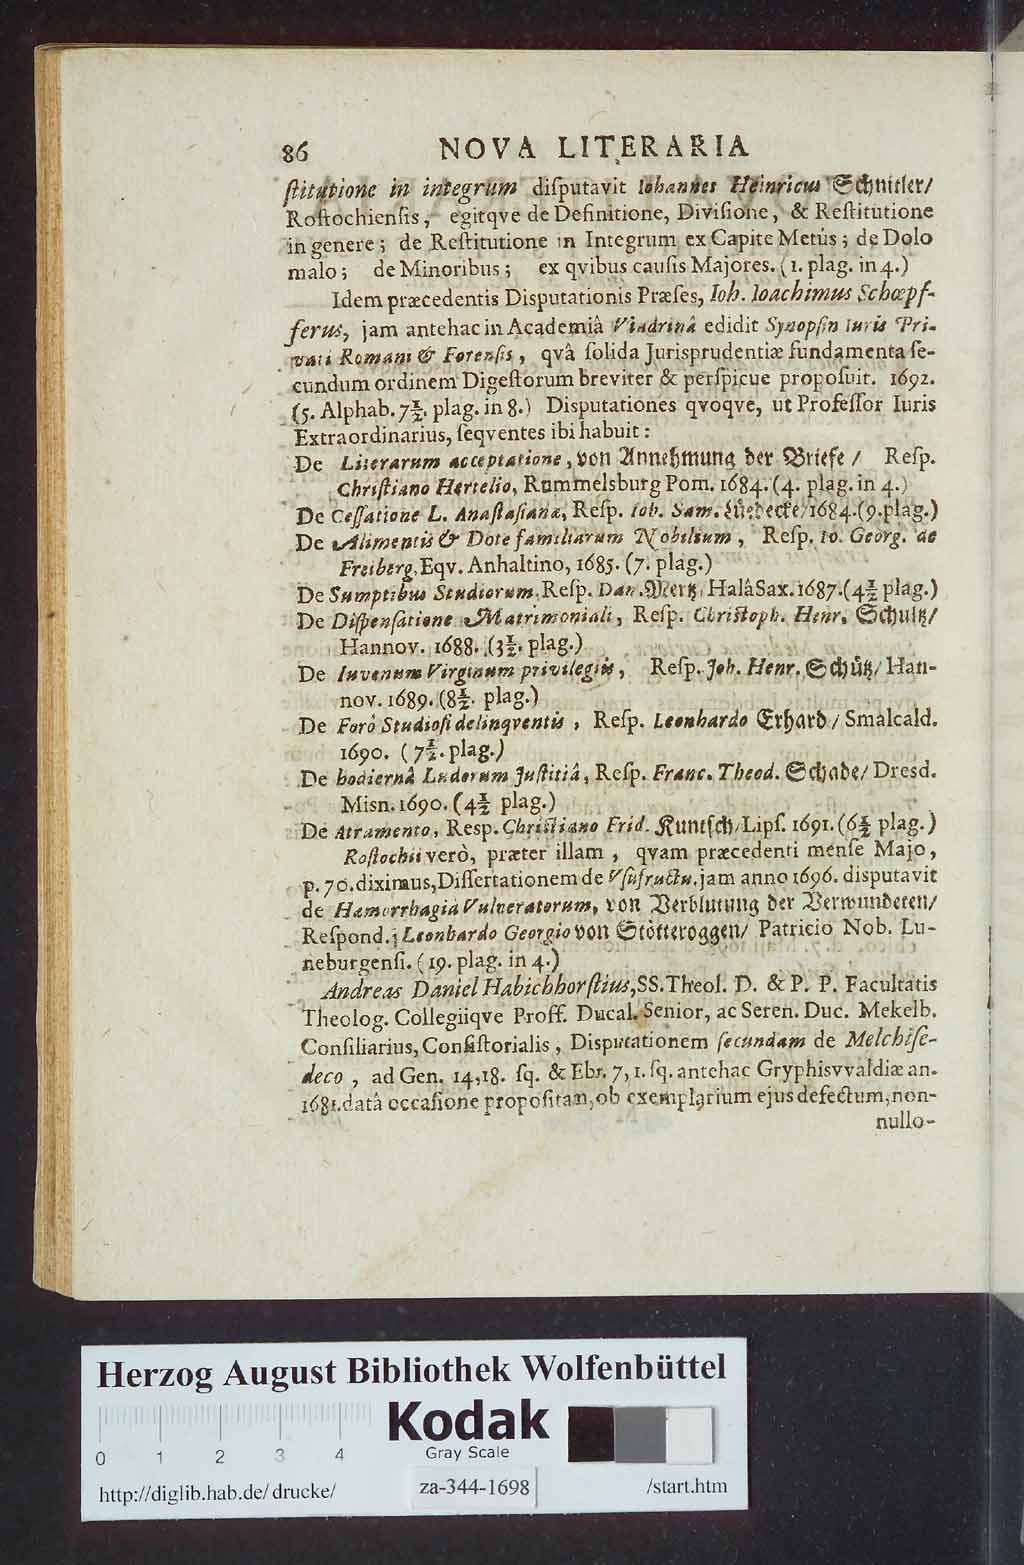 86 NOVA LITERARIA
ſtitutione in integrum diſputavit Iohannes Heinricus Schnitler/
Roſtochienſis, egitqve de Definitione, Diviſione, & Reſtitutione
in genere; de Reſtitutione in Integrum ex Capite Metûs; de Dolo
malo; de Minoribus; ex qvibus cauſis Majores. (1. plag. in 4.)
Idem præcedentis Disputationis Præſes, Ioh. Ioachimus Schœpf-
ferus, jam antehac in Academiâ Viadrinâ edidit Synopſin Iuris Pri-
vati Romani & Forenſis, qvâ ſolida Jurisprudentiæ fundamenta ſe-
cundum ordinem Digeſtorum breviter & perſpicue propoſuit. 1692.
(5. Alphab. 7½. plag. in 8.) Disputationes qvoqve, ut Profeſſor Iuris
Extraordinarius, ſeqventes ibi habuit:
De Literarum acceptatione, von Annehmung der Briefe / Reſp.
Chriſtiano Hertelio, Rummelsburg Pom. 1684. (4. plag. in 4.)
De Ceſſatione L. Anaſtaſianæ, Reſp. Ioh. Sam. Luͤdecke/1684.(9.plag.)
De Alimentis & Dote familiarum Nobilium, Reſp. Io. Georg. de
Freiberg, Eqv. Anhaltino, 1685. (7. plag.)
De Sumptibus Studiorum, Reſp. Dan. Mertz/ Halâ Sax. 1687.(4½ plag.)
De Diſpenſatione Matrimoniali, Reſp. Chriſtoph. Henr. Schultz/
Hannov. 1688. (3½. plag.)
De Iuvenum Virginum privilegiis, Reſp. Joh. Henr. Schuͤtz/ Han-
nov. 1689. (8½. plag.)
De Forô Studioſi delinqventis, Reſp. Leonhardo Erhard / Smalcald.
1690. (7½. plag.)
De hodiernâ Ludorum Juſtitiâ, Reſp. Franc. Theod. Schade/ Dresd.
Misn. 1690. (4½ plag.)
De Atramento, Resp. Chriſtiano Frid. Kuntſch/Lipſ. 1691. (6½ plag.)
Roſtochii verò, præter illam, qvam præcedenti menſe Majo,
p. 70. diximus, Diſſertationem de Vſufructu, jam anno 1696. disputavit
de Hæmorrhagiâ Vulneratorum, von Verblutung der Verwundeten/
Reſpond. Leonhardo Georgio von Stötteroggen/ Patricio Nob. Lu-
neburgenſi. (19. plag. in 4.)
Andreas Daniel Habichhorſtius, SS. Theol. D. & P. P. Facultatis
Theolog. Collegiiqve Proff. Ducal. Senior, ac Seren. Duc. Mekelb.
Conſiliarius, Conſiſtorialis, Disputationem ſecundam de Melchiſe-
deco, ad Gen. 14,18. ſq. & Ebr. 7, 1. ſq. antehac Gryphisvvaldiæ an.
1681. datâ occaſione propoſitam, ob exemplarium ejus defectum, non-
nullo-
Herzog August Bibliothek Wolfenbüttel
Kodak
Gray Scale
0 1 2 3 4
http://diglib.hab.de/drucke/ za-344-1698 /start.htm